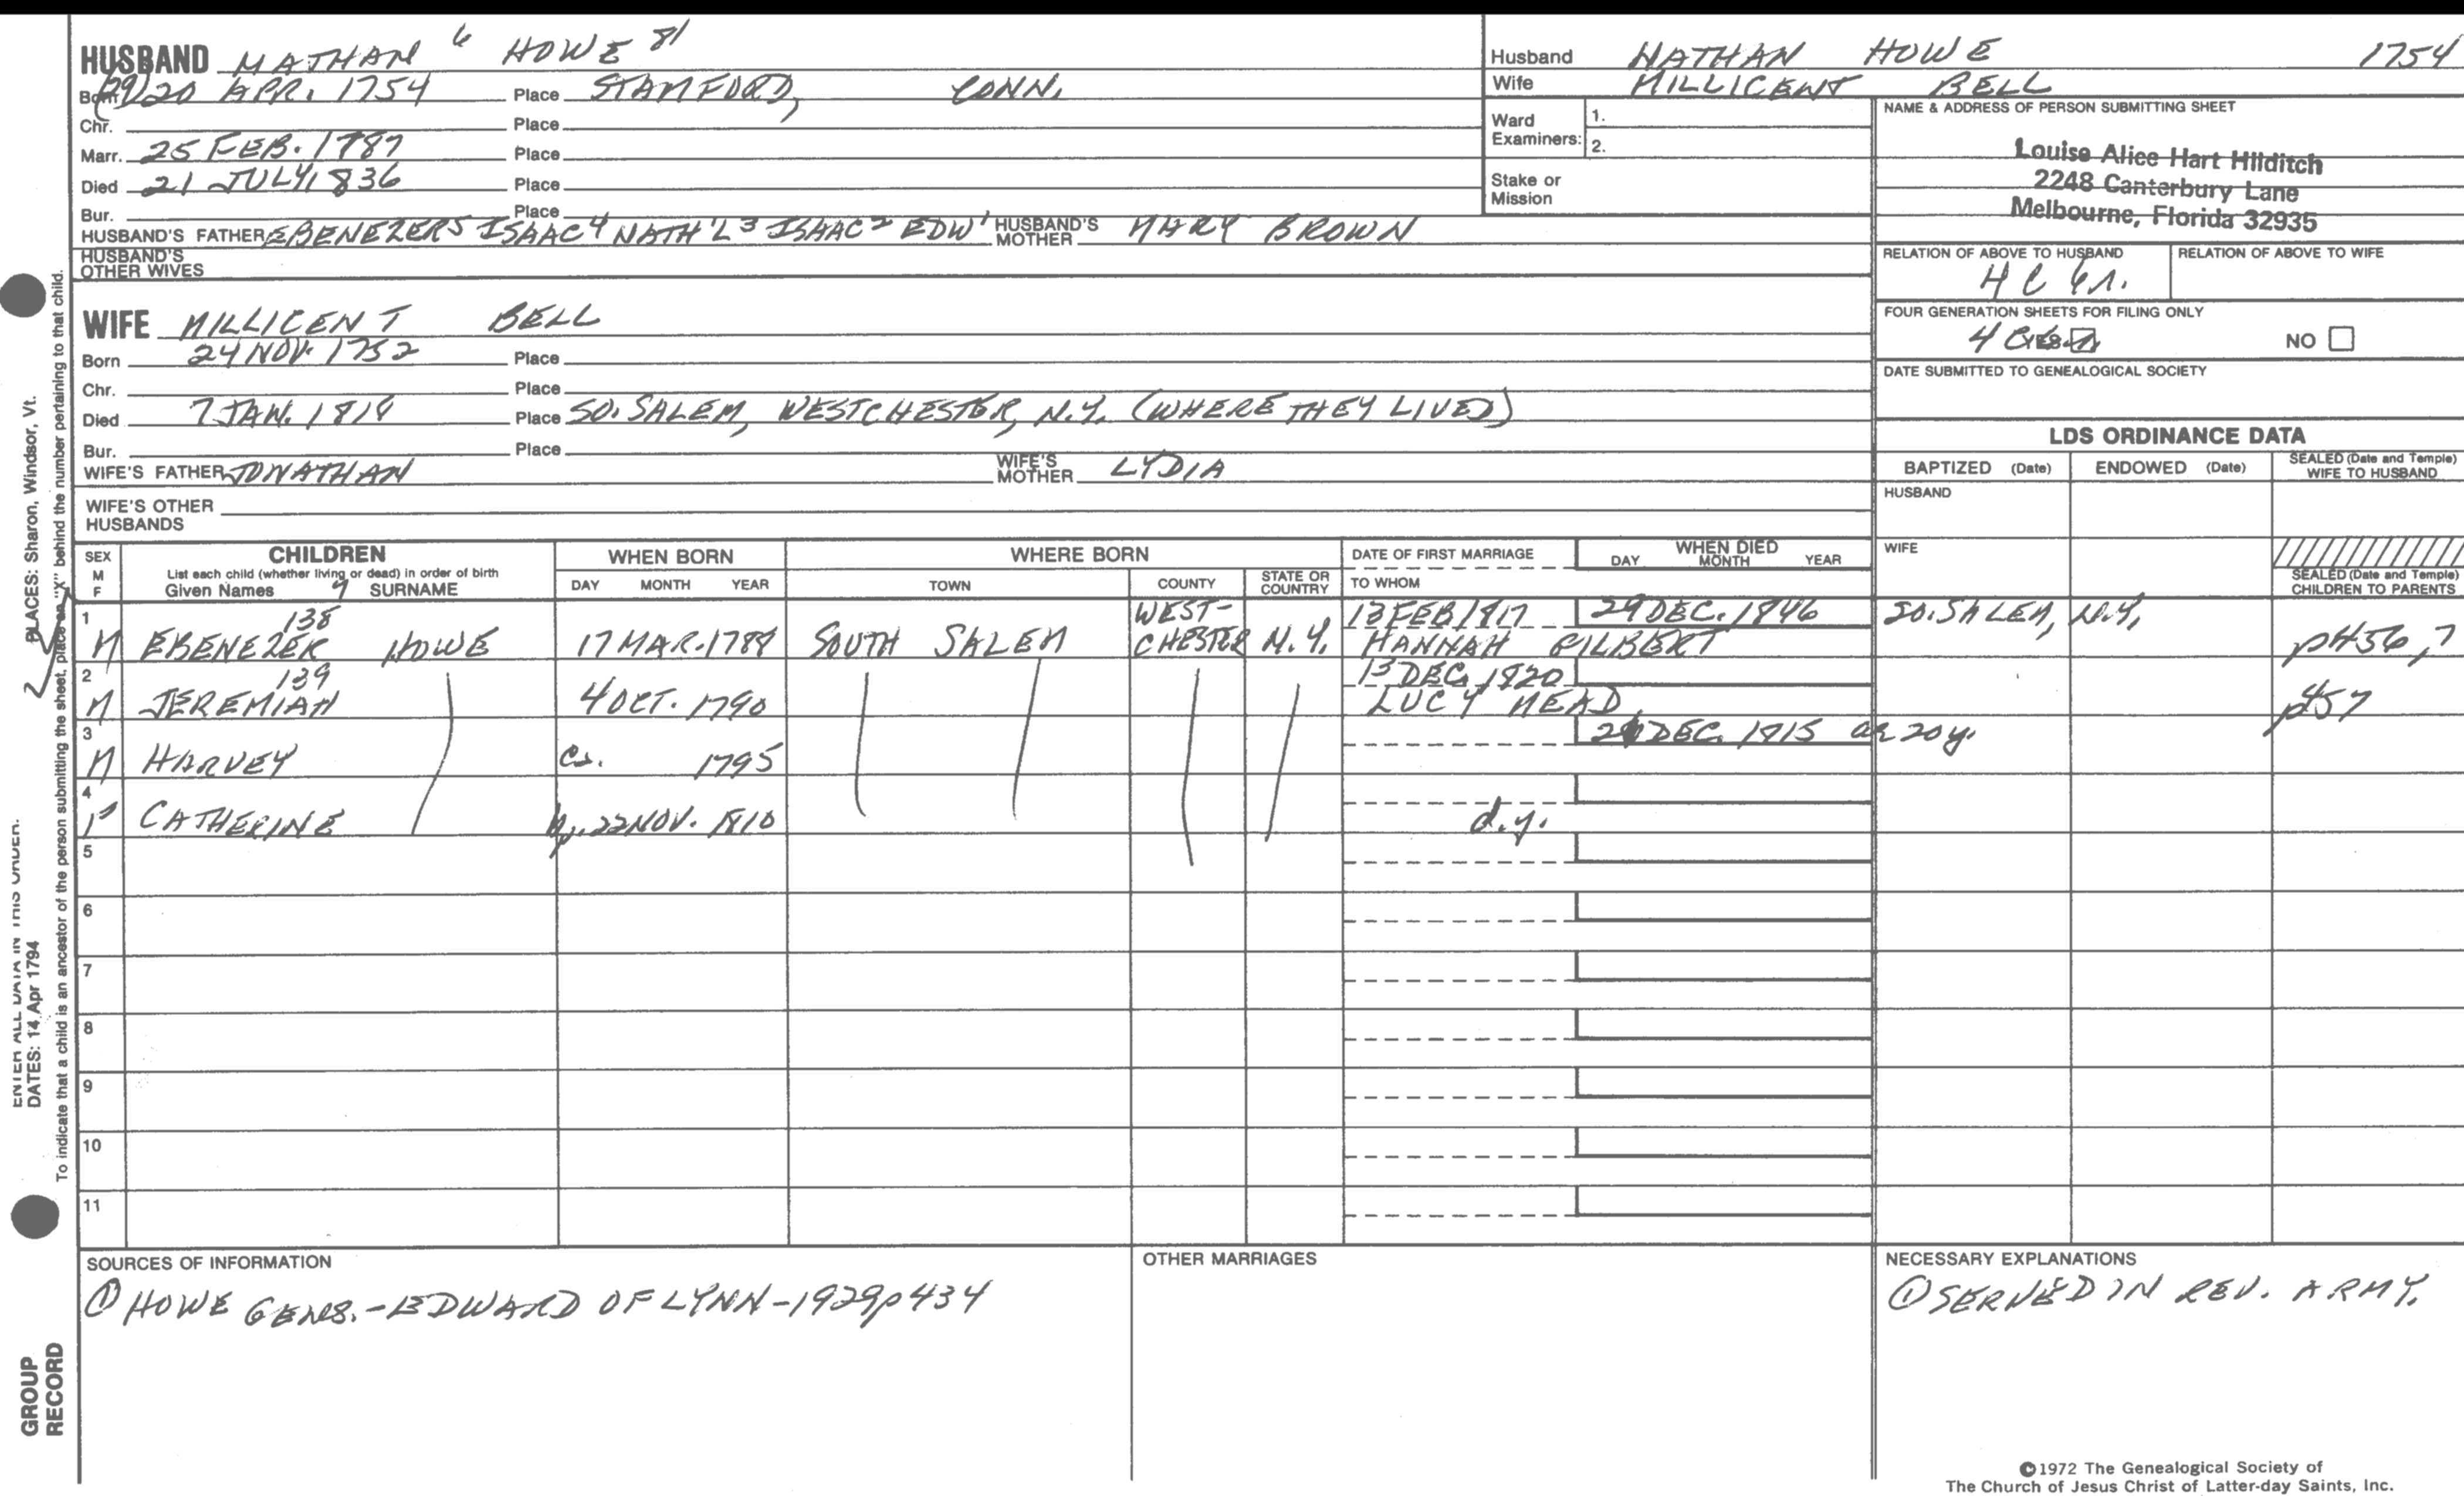 HUSBAND NATHAN 6 HOWE 81
Born (29) 20 APR. 1754 Place STAMFORD, CONN.
Chr. Place
Marr. 25 FEB. 1787 Place
Died 21 JULY 1836 Place
Bur. Place
HUSBAND'S FATHER EBENEZER5 ISAAC4 NATH'L3 ISAAC2 EDW1 HUSBAND'S MOTHER MARY BROWN
HUSBAND'S OTHER WIVES
Husband NATHAN HOWE 1754
Wife MILLICENT BELL
Ward Examiners: 1.
2.
Stake or Mission
NAME & ADDRESS OF PERSON SUBMITTING SHEET
Louise Alice Hart Hilditch
2248 Canterbury Lane
Melbourne, Florida 32935
RELATION OF ABOVE TO HUSBAND RELATION OF ABOVE TO WIFE
4 C 6r.
FOUR GENERATION SHEETS FOR FILING ONLY
YES NO
DATE SUBMITTED TO GENEALOGICAL SOCIETY
WIFE MILLICENT BELL
Born 24 NOV. 1752 Place
Chr. Place
Died 7 JAN. 1818 Place SO. SALEM, WESTCHESTER, N.Y. (WHERE THEY LIVED)
Bur. Place
WIFE'S FATHER JONATHAN WIFE'S MOTHER LYDIA
WIFE'S OTHER HUSBANDS
LDS ORDINANCE DATA
BAPTIZED (Date) ENDOWED (Date) SEALED (Date and Temple) WIFE TO HUSBAND
HUSBAND
WIFE
SEALED (Date and Temple) CHILDREN TO PARENTS
SEX M F
CHILDREN
List each child (whether living or dead) in order of birth
Given Names 7 SURNAME
WHEN BORN
DAY MONTH YEAR
WHERE BORN
TOWN COUNTY STATE OR COUNTRY
DATE OF FIRST MARRIAGE
TO WHOM
WHEN DIED
DAY MONTH YEAR
1 138 WEST- 13 FEB 1817 29 DEC. 1846 SO. SALEM, N.Y.
M EBENEZER HOWE 17 MAR. 1788 SOUTH SALEM CHESTER N.Y. HANNAH GILBERT p456,7
2 139 13 DEC. 1820
M JEREMIAH 4 OCT. 1790 LUCY MEAD p457
3 DEC. 1815 ae 20 y.
M HARVEY ca. 1795
4
F CATHERINE bp. 22 NOV. 1810 d.y.
5
6
7
8
9
10
11
SOURCES OF INFORMATION
① HOWE GENES. - EDWARD OF LYNN - 1929 p434
OTHER MARRIAGES
NECESSARY EXPLANATIONS
① SERVED IN REV. ARMY.
©1972 The Genealogical Society of
The Church of Jesus Christ of Latter-day Saints, Inc.
ENTER ALL DATA IN THIS ORDER:
DATES: 14 Apr 1794
PLACES: Sharon, Windsor, Vt.
To indicate that a child is an ancestor of the person submitting the sheet, place an "X" behind the number pertaining to that child.
GROUP
RECORD